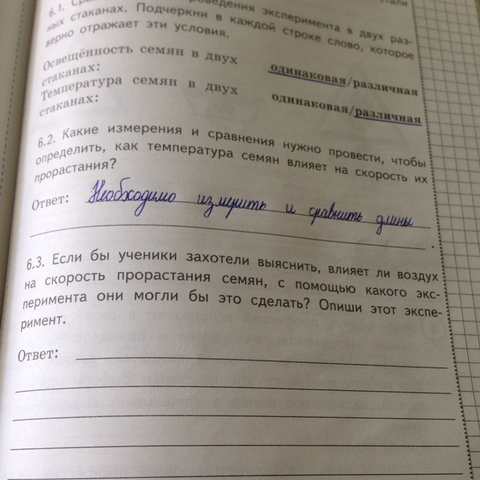 6.1. проведения эксперимента в двух раз-
ных стаканах. Подчеркни в каждой строке слово, которое
верно отражает эти условия.
Освещённость семян в двух
стаканах: одинаковая/различная
Температура семян в двух
стаканах: одинаковая/различная
6.2. Какие измерения и сравнения нужно провести, чтобы
определить, как температура семян влияет на скорость их
прорастания?
Ответ: Необходимо измерить и сравнить длины
.
6.3. Если бы ученики захотели выяснить, влияет ли воздух
на скорость прорастания семян, с помощью какого экс-
перимента они могли бы это сделать? Опиши этот экспе-
римент.
Ответ: